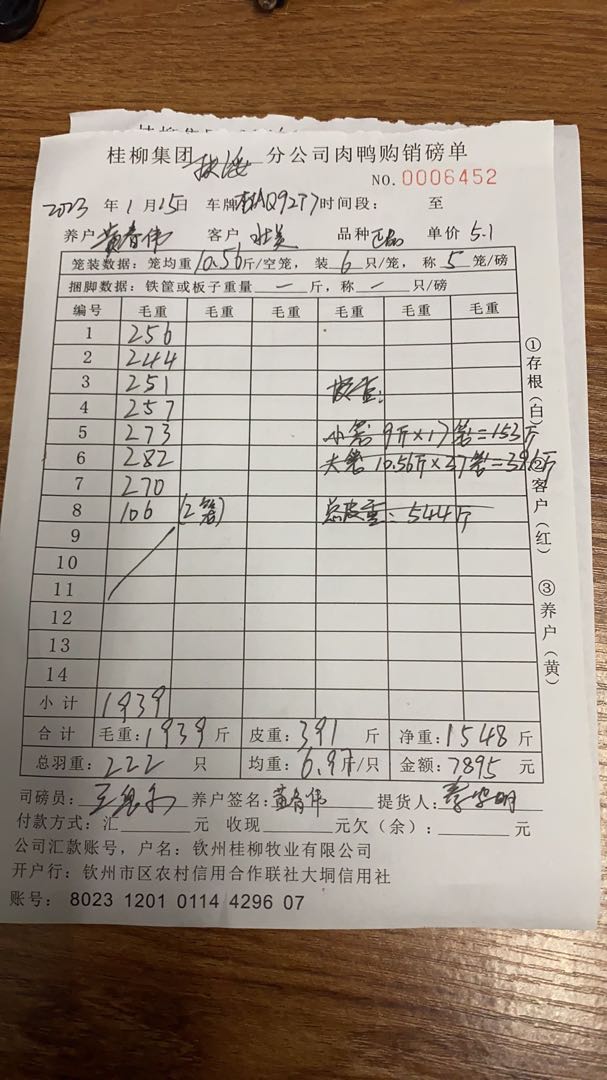 桂柳集团 分公司肉鸭购销磅单
NO. 0006452
2023 年 1 月 15日 车牌桂AQ9277时间段： 至
养户 黄春伟 客户 壮美 品种 正品 单价 5.1
笼装数据：笼均重 10.56 斤/空笼，装 6 只/笼，称 5 笼/磅
捆脚数据：铁筐或板子重量 — 斤，称 — 只/磅
编号 毛重 毛重 毛重 毛重 毛重 毛重
1 256
2 244
3 251 皮重：
4 257
5 273 小笼 9斤×17笼=153斤
6 282 大笼 10.56斤×37笼=391斤
7 270
8 106 (2笼) 总皮重：544斤
9
10
11
12
13
14
小计 1939
合计 毛重：1939 斤 皮重：391 斤 净重：1548 斤
总羽重：222 只 均重：6.97斤/只 金额：7895 元
司磅员： 养户签名：黄春伟 提货人：
付款方式：汇 元 收现 元欠（余）： 元
公司汇款账号，户名：钦州桂柳牧业有限公司
开户行：钦州市区农村信用合作联社大垌信用社
账号： 8023 1201 0114 4296 07
①存根（白）②客户（红） ③养户（黄）